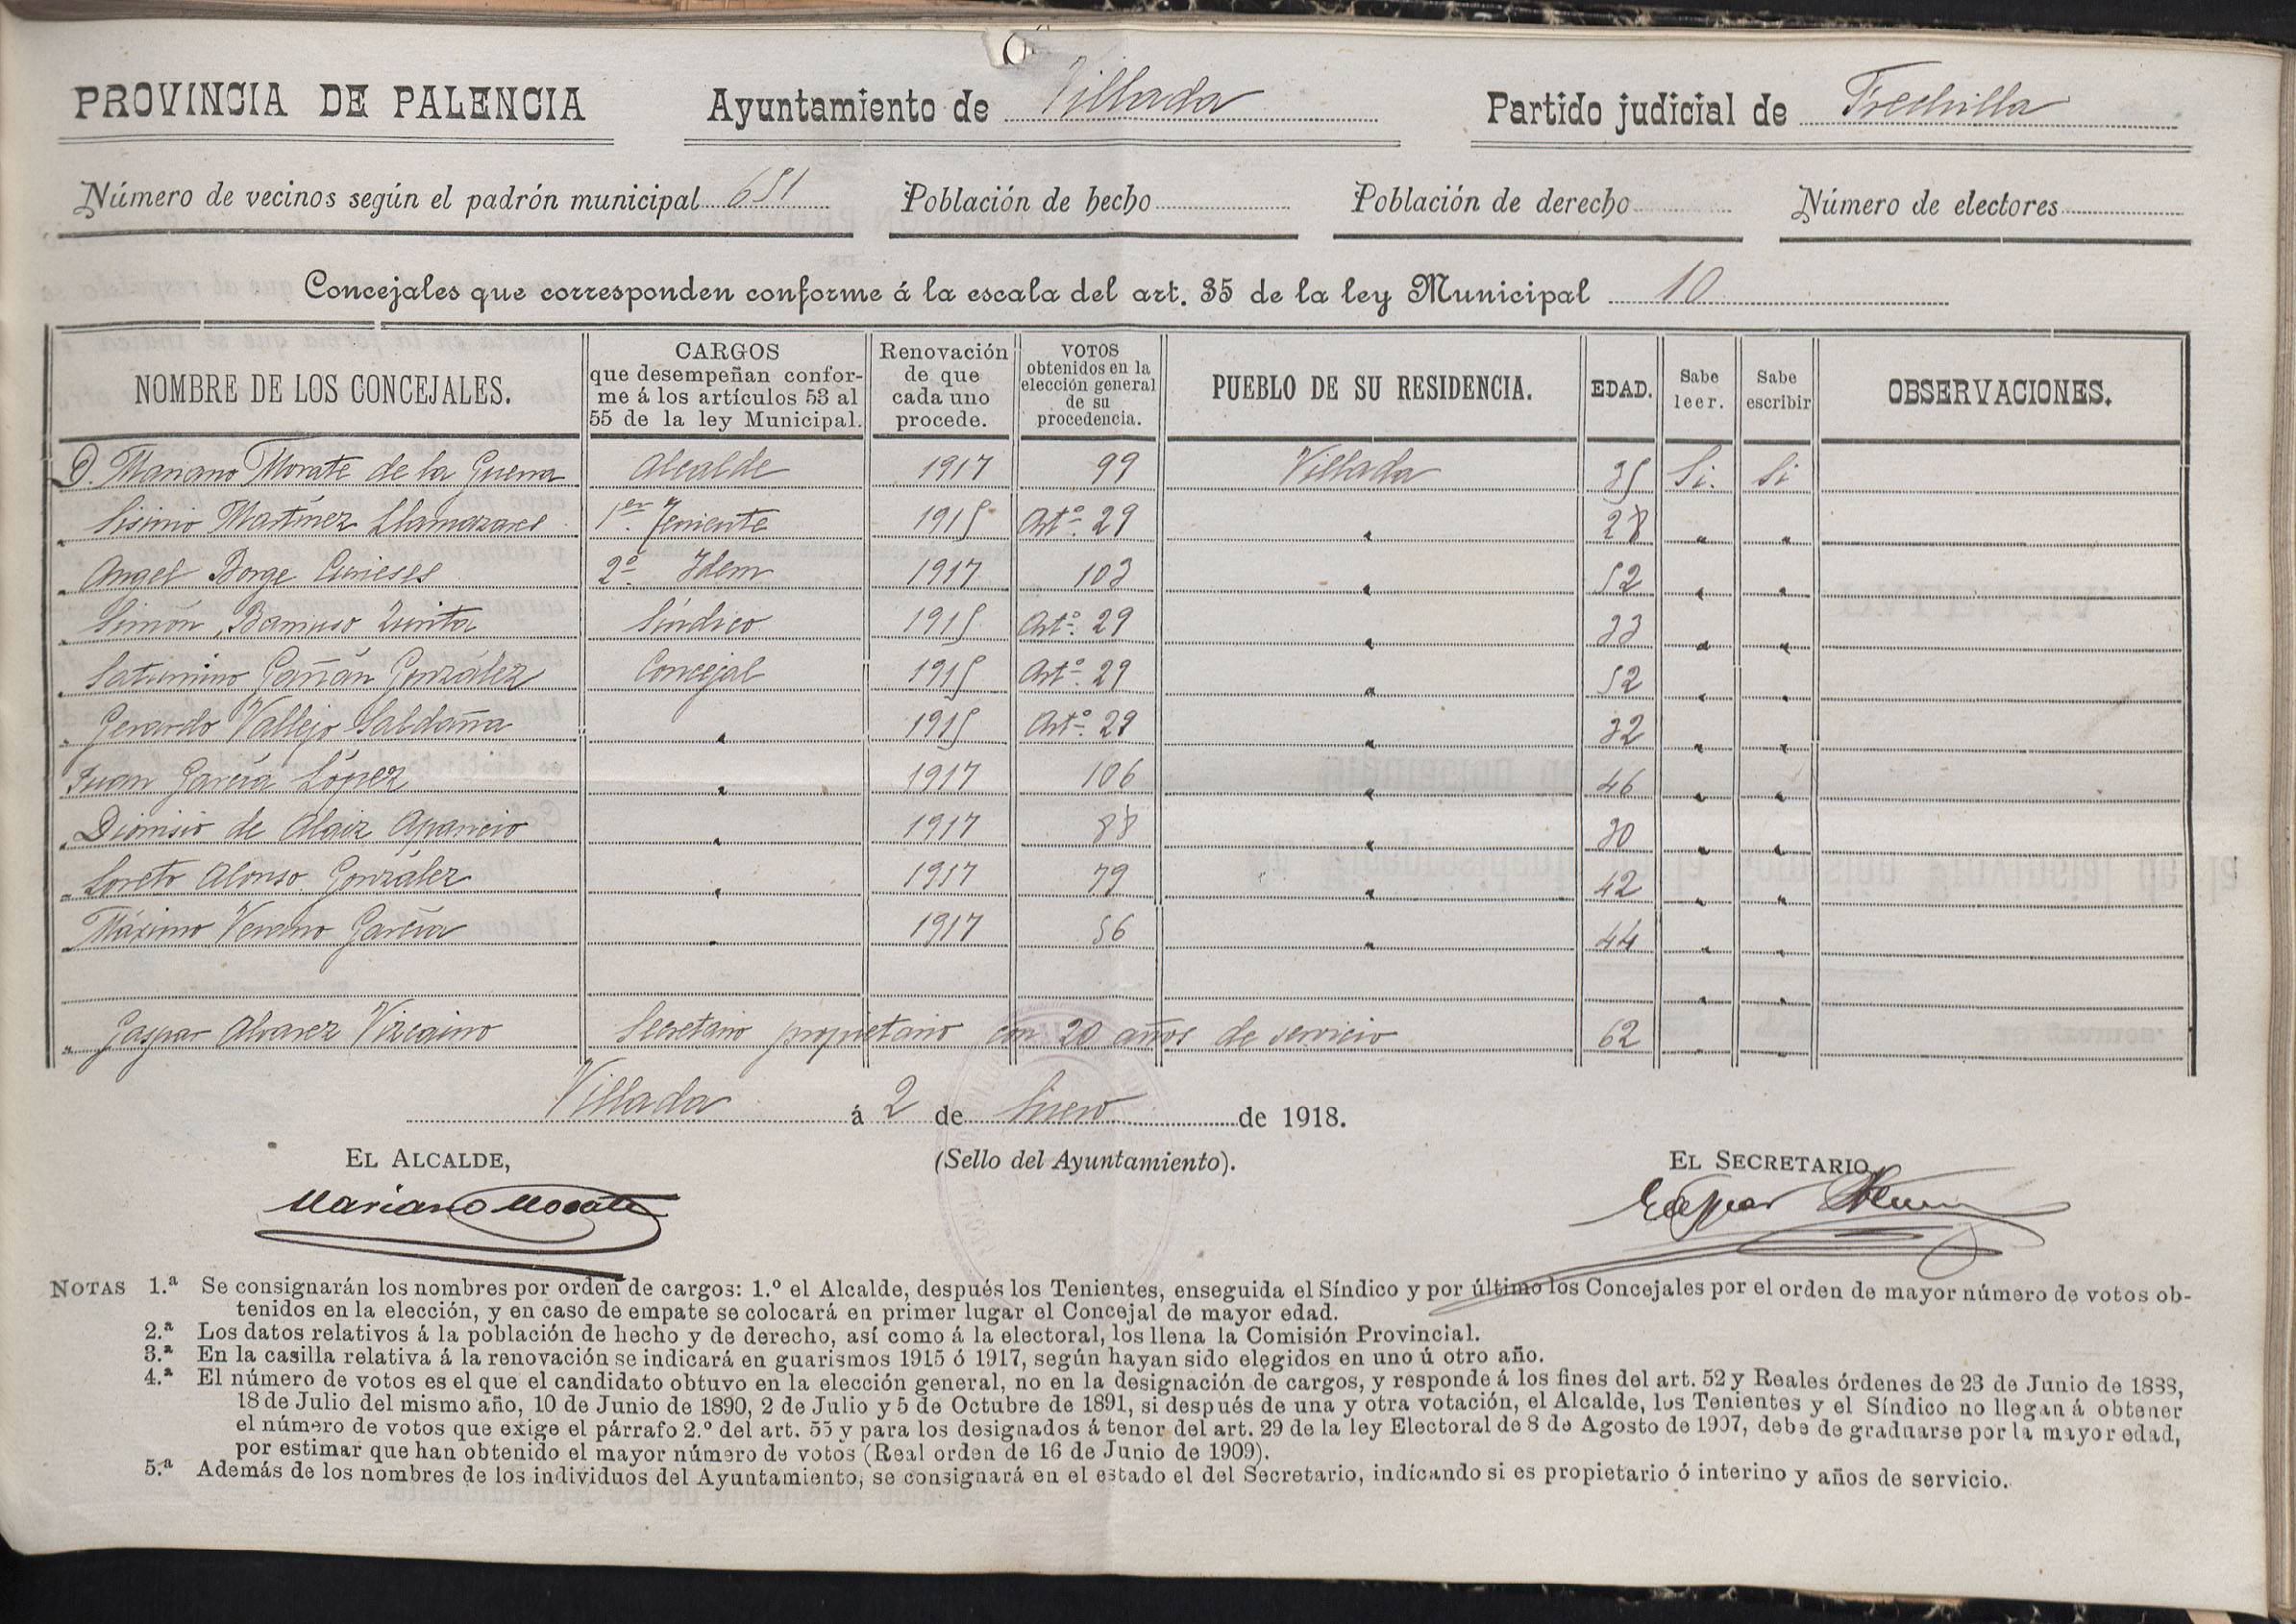 PROVINCIA DE PALENCIA Ayuntamiento de Villada Partido judicial de Frechilla
Número de vecinos según el padrón municipal 651 Población de hecho Población de derecho Número de electores
Concejales que corresponden conforme á la escala del art. 35 de la ley Municipal 10
NOMBRE DE LOS CONCEJALES. CARGOS que desempeñan conforme á los artículos 53 al 55 de la ley Municipal. Renovación de que cada uno procede. VOTOS obtenidos en la elección general de su procedencia. PUEBLO DE SU RESIDENCIA. EDAD. Sabe leer. Sabe escribir OBSERVACIONES.
D. Mariano Morate de la Guerra Alcalde 1917 99 Villada 35 Si. Si
" Sisinio Martínez Llamazares 1er. Teniente 1915 Artº. 29 " 28 " "
" Angel Borge Cuñeses 2º. Idem 1917 103 " 52 " "
" Simón Barruso Zurita Síndico 1915 Artº. 29 " 33 " "
" Saturnino Gañán González Concejal 1915 Artº. 29 " 52 " "
" Gerardo Vallejo Saldaña " 1915 Artº. 29 " 32 " "
Juan García López " 1917 106 " 46 " "
" Dionisio de Alaiz Aparicio " 1917 88 " 30 " "
" Loreto Alonso González " 1917 79 " 42 " "
" Máximo Verano García " 1917 56 " 44 " "
" "
" Gaspar Alvarez Vizcaino Secretario propietario con 20 años de servicio 62 " "
Villada á 2 de Enero de 1918.
EL ALCALDE, (Sello del Ayuntamiento). EL SECRETARIO,
Mariano Morate Gaspar Alvarez
NOTAS 1.ª Se consignarán los nombres por orden de cargos: 1.º el Alcalde, después los Tenientes, enseguida el Síndico y por último los Concejales por el orden de mayor número de votos ob-
tenidos en la elección, y en caso de empate se colocará en primer lugar el Concejal de mayor edad.
2.ª Los datos relativos á la población de hecho y de derecho, así como á la electoral, los llena la Comisión Provincial.
3.ª En la casilla relativa á la renovación se indicará en guarismos 1915 ó 1917, según hayan sido elegidos en uno ú otro año.
4.ª El número de votos es el que el candidato obtuvo en la elección general, no en la designación de cargos, y responde á los fines del art. 52 y Reales órdenes de 23 de Junio de 1888,
18 de Julio del mismo año, 10 de Junio de 1890, 2 de Julio y 5 de Octubre de 1891, si después de una y otra votación, el Alcalde, los Tenientes y el Síndico no llegan á obtener
el número de votos que exige el párrafo 2.º del art. 55 y para los designados á tenor del art. 29 de la ley Electoral de 8 de Agosto de 1907, debe de graduarse por la mayor edad,
por estimar que han obtenido el mayor número de votos (Real orden de 16 de Junio de 1909).
5.ª Además de los nombres de los individuos del Ayuntamiento, se consignará en el estado el del Secretario, indicando si es propietario ó interino y años de servicio.